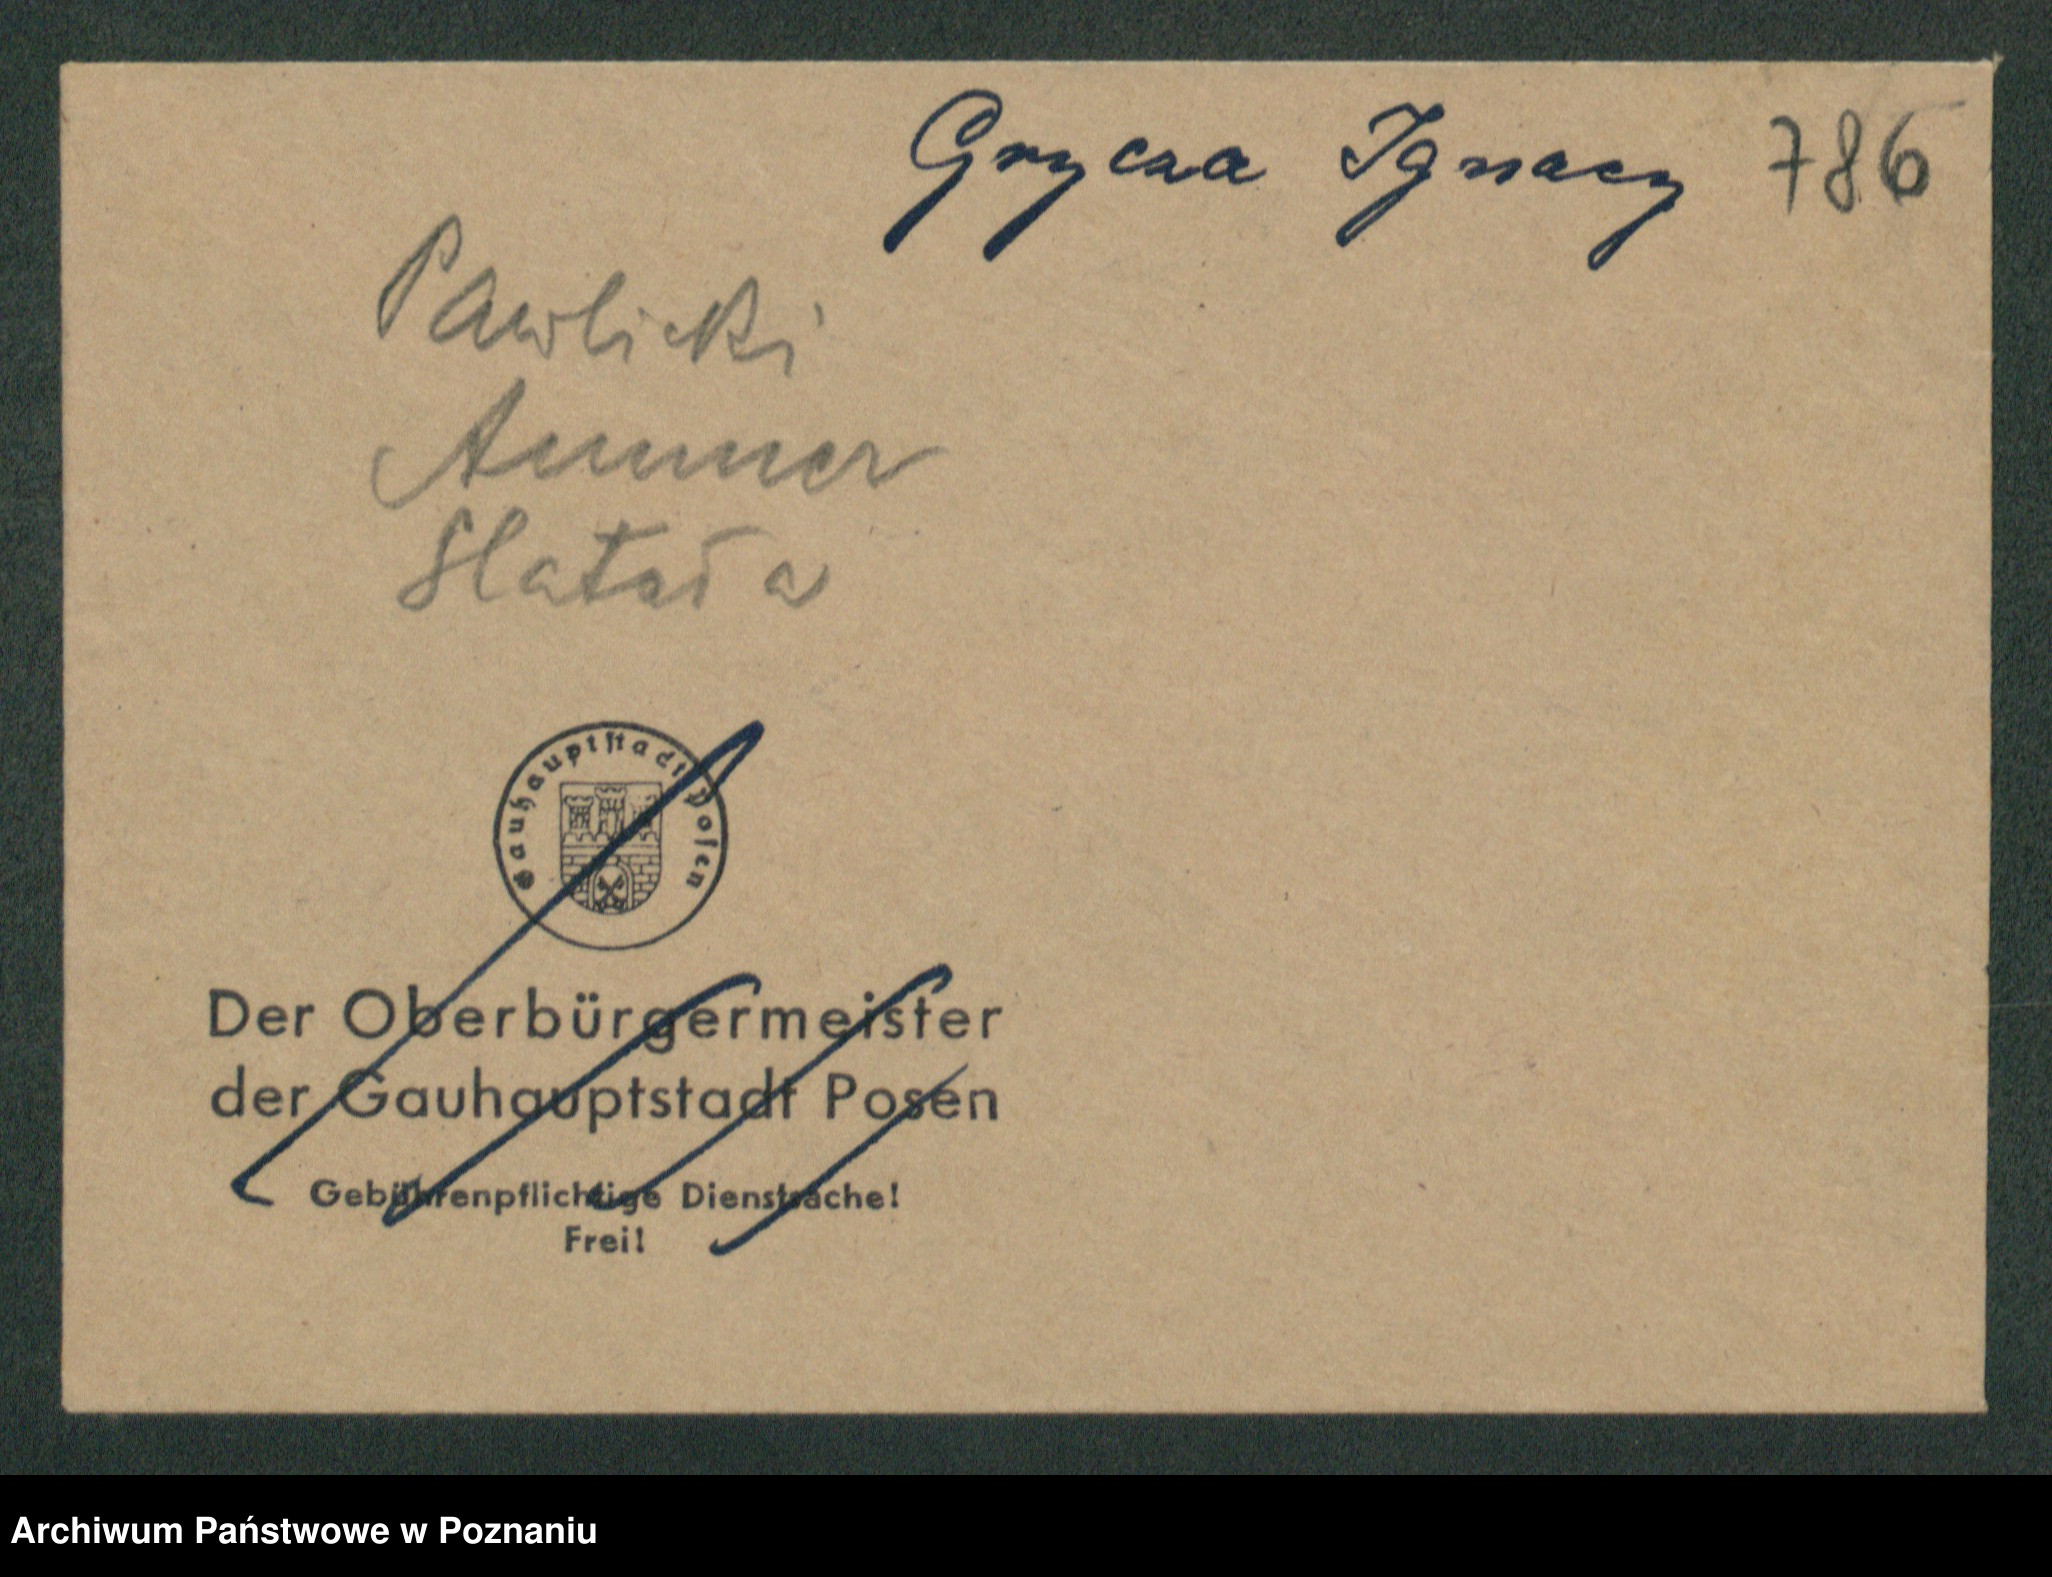 Grycza Ignacy 786
Pawlicki
Ammer
Gauhauptstadt Posen
Der Oberbürgermeister
der Gauhauptstadt Posen
Gebührenpflichtige Dienstsache!
Frei!
Archiwum Państwowe w Poznaniu